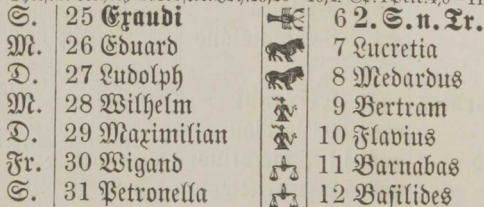 S. 25 Exaudi 6 2. S. n. Tr.
M. 26 Eduard 7 Lucretia
D. 27 Ludolph 8 Medardus
M. 28 Wilhelm 9 Bertram
D. 29 Maximilian 10 Flavius
Fr. 30 Wigand 11 Barnabas
S. 31 Petronella 12 Basilides